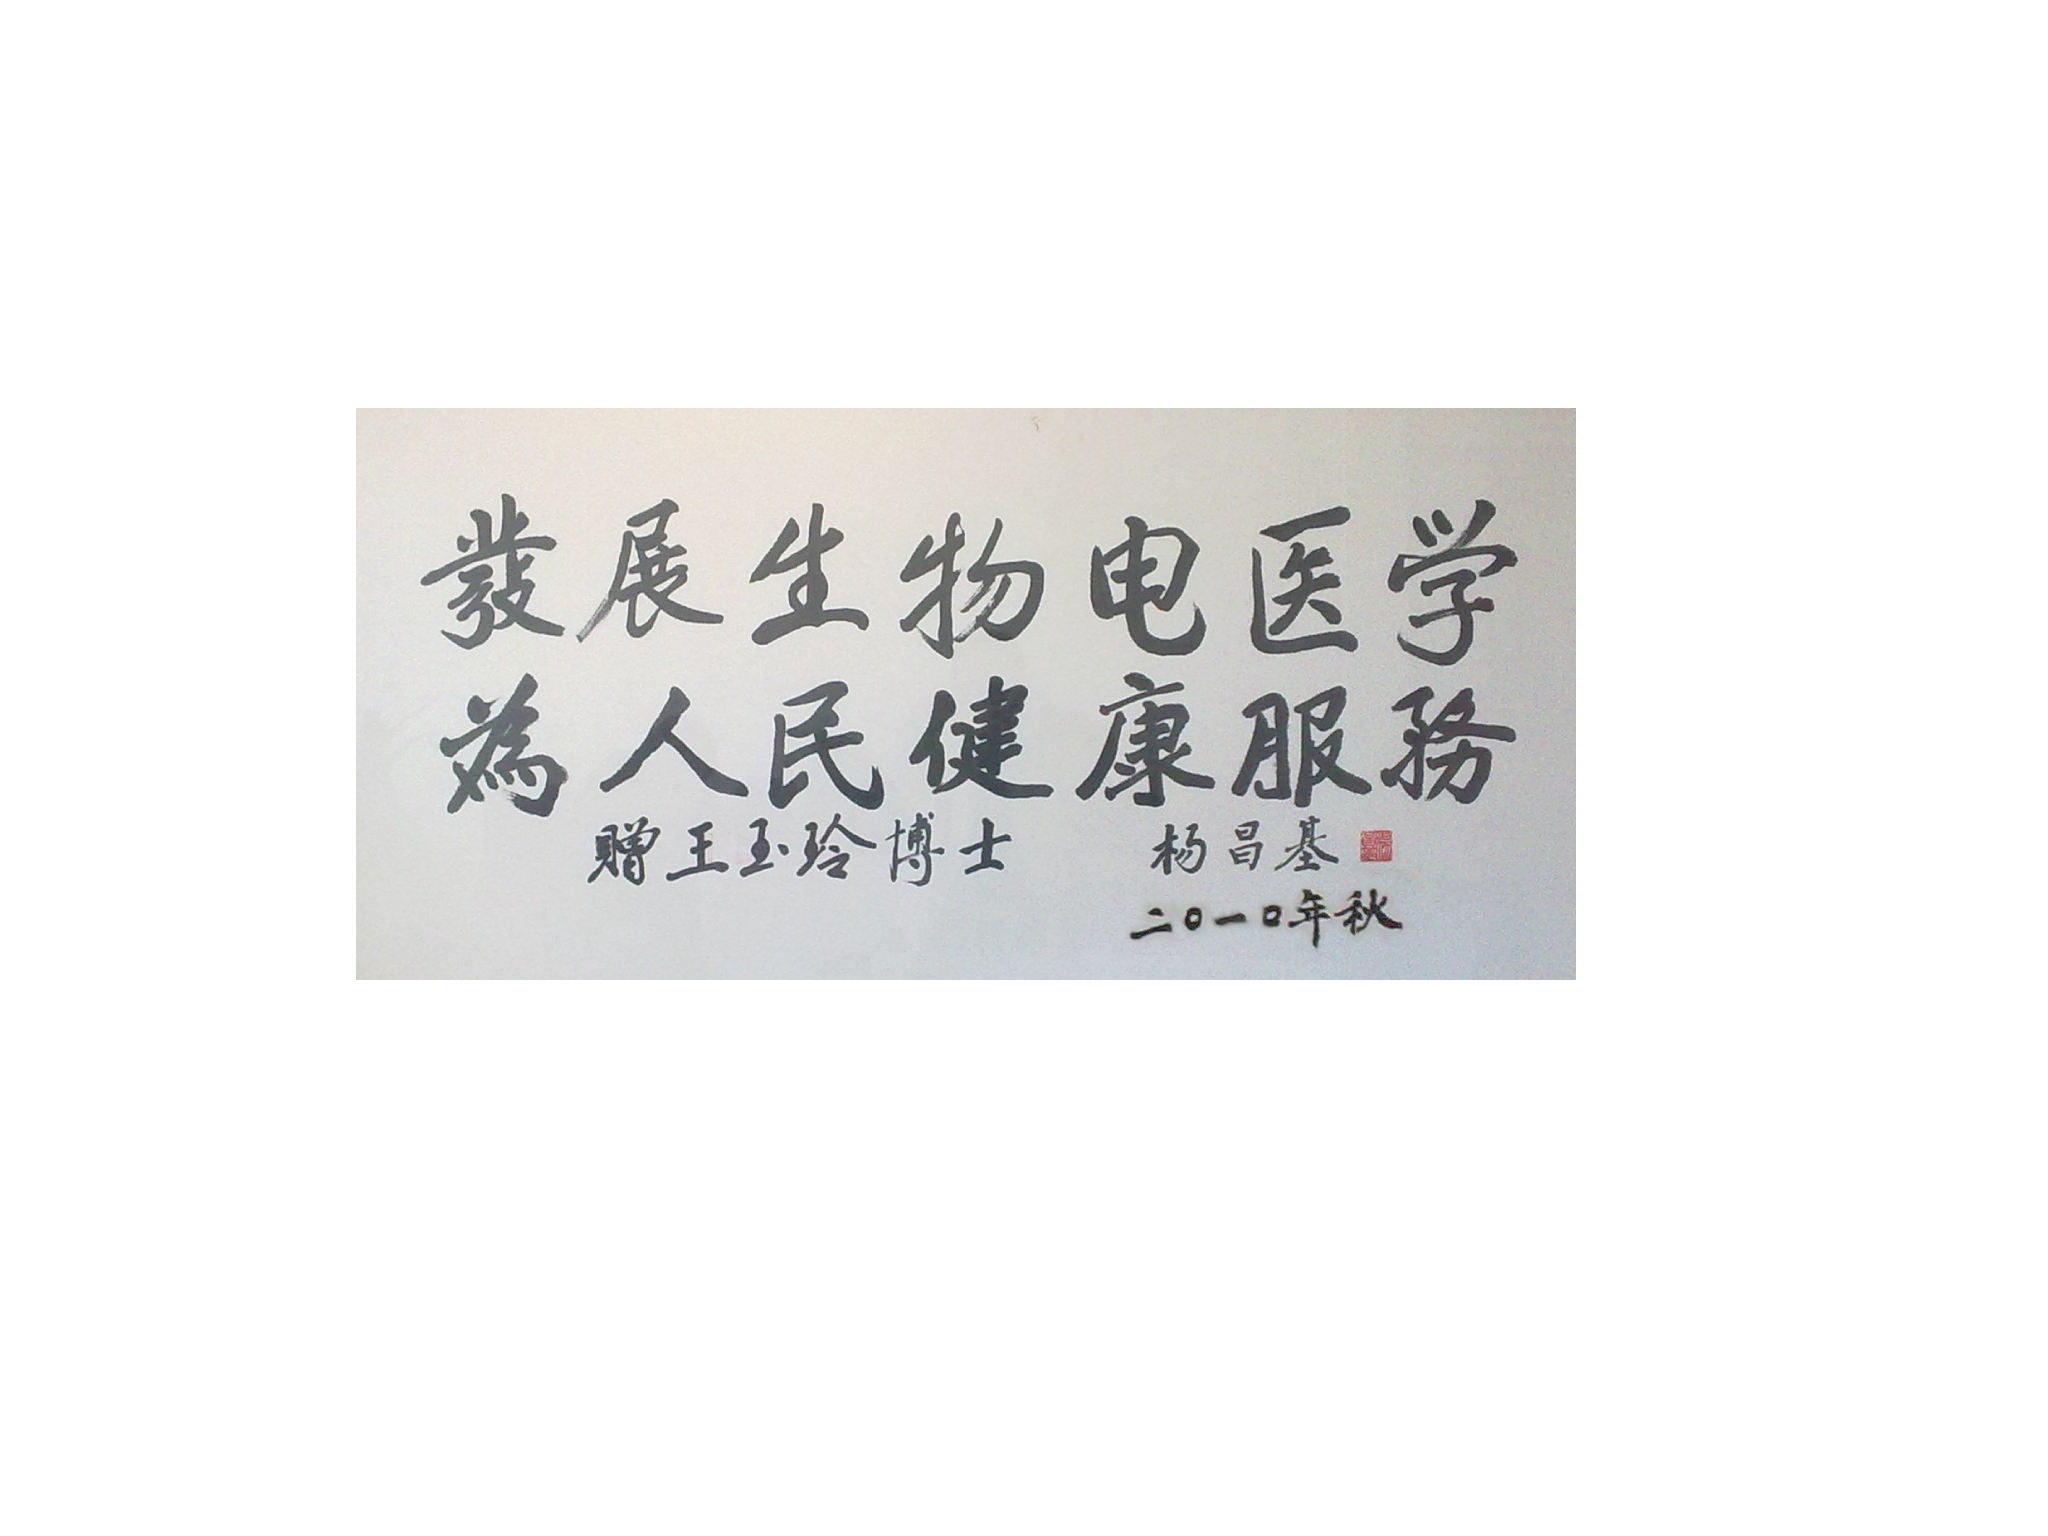 發展生物电医学
為人民健康服務
贈王玉玲博士 杨昌基
二〇一〇年秋